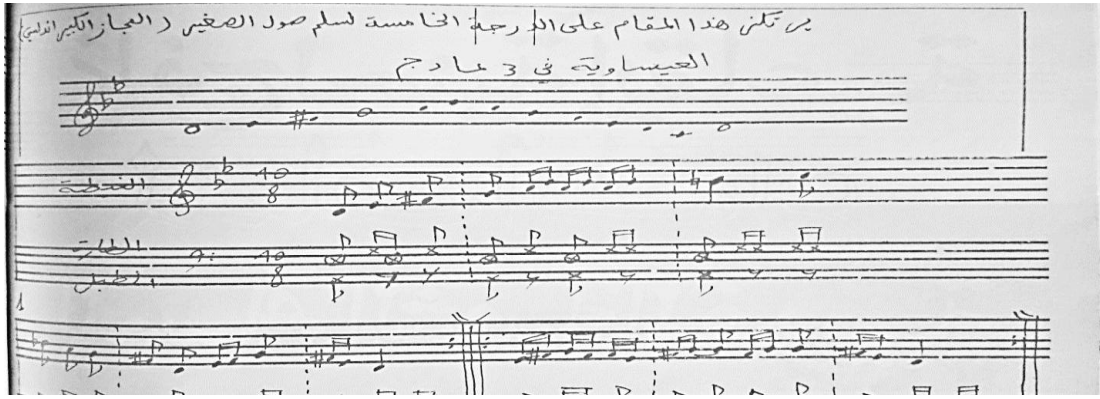 يرتكز هذا المقام على الدرجة الخامسة لسلم صول الصغير ( الحجاز الكبير
العيساوية في 3 عادج
الغيطة
10
8
الطار
10
8
الطبل
1